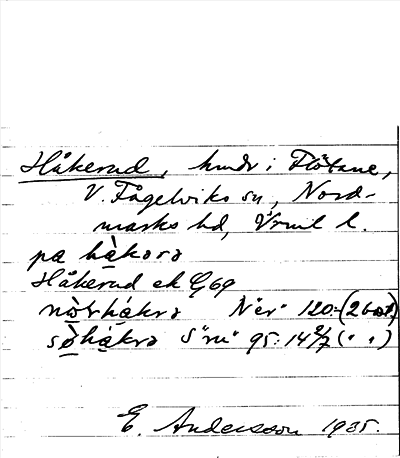 Håkerud, hmdr i Flötane,
V. Fågelviks sn, Nord-
marks hd, Vrml l.
pa hàkərə
Håkerud ek G,69
nò̱rhákrə N"er" 120:-(2 b
sø̱hákrə S"ru" 95:14 2/7 (" ")
E. Andersson 1935.